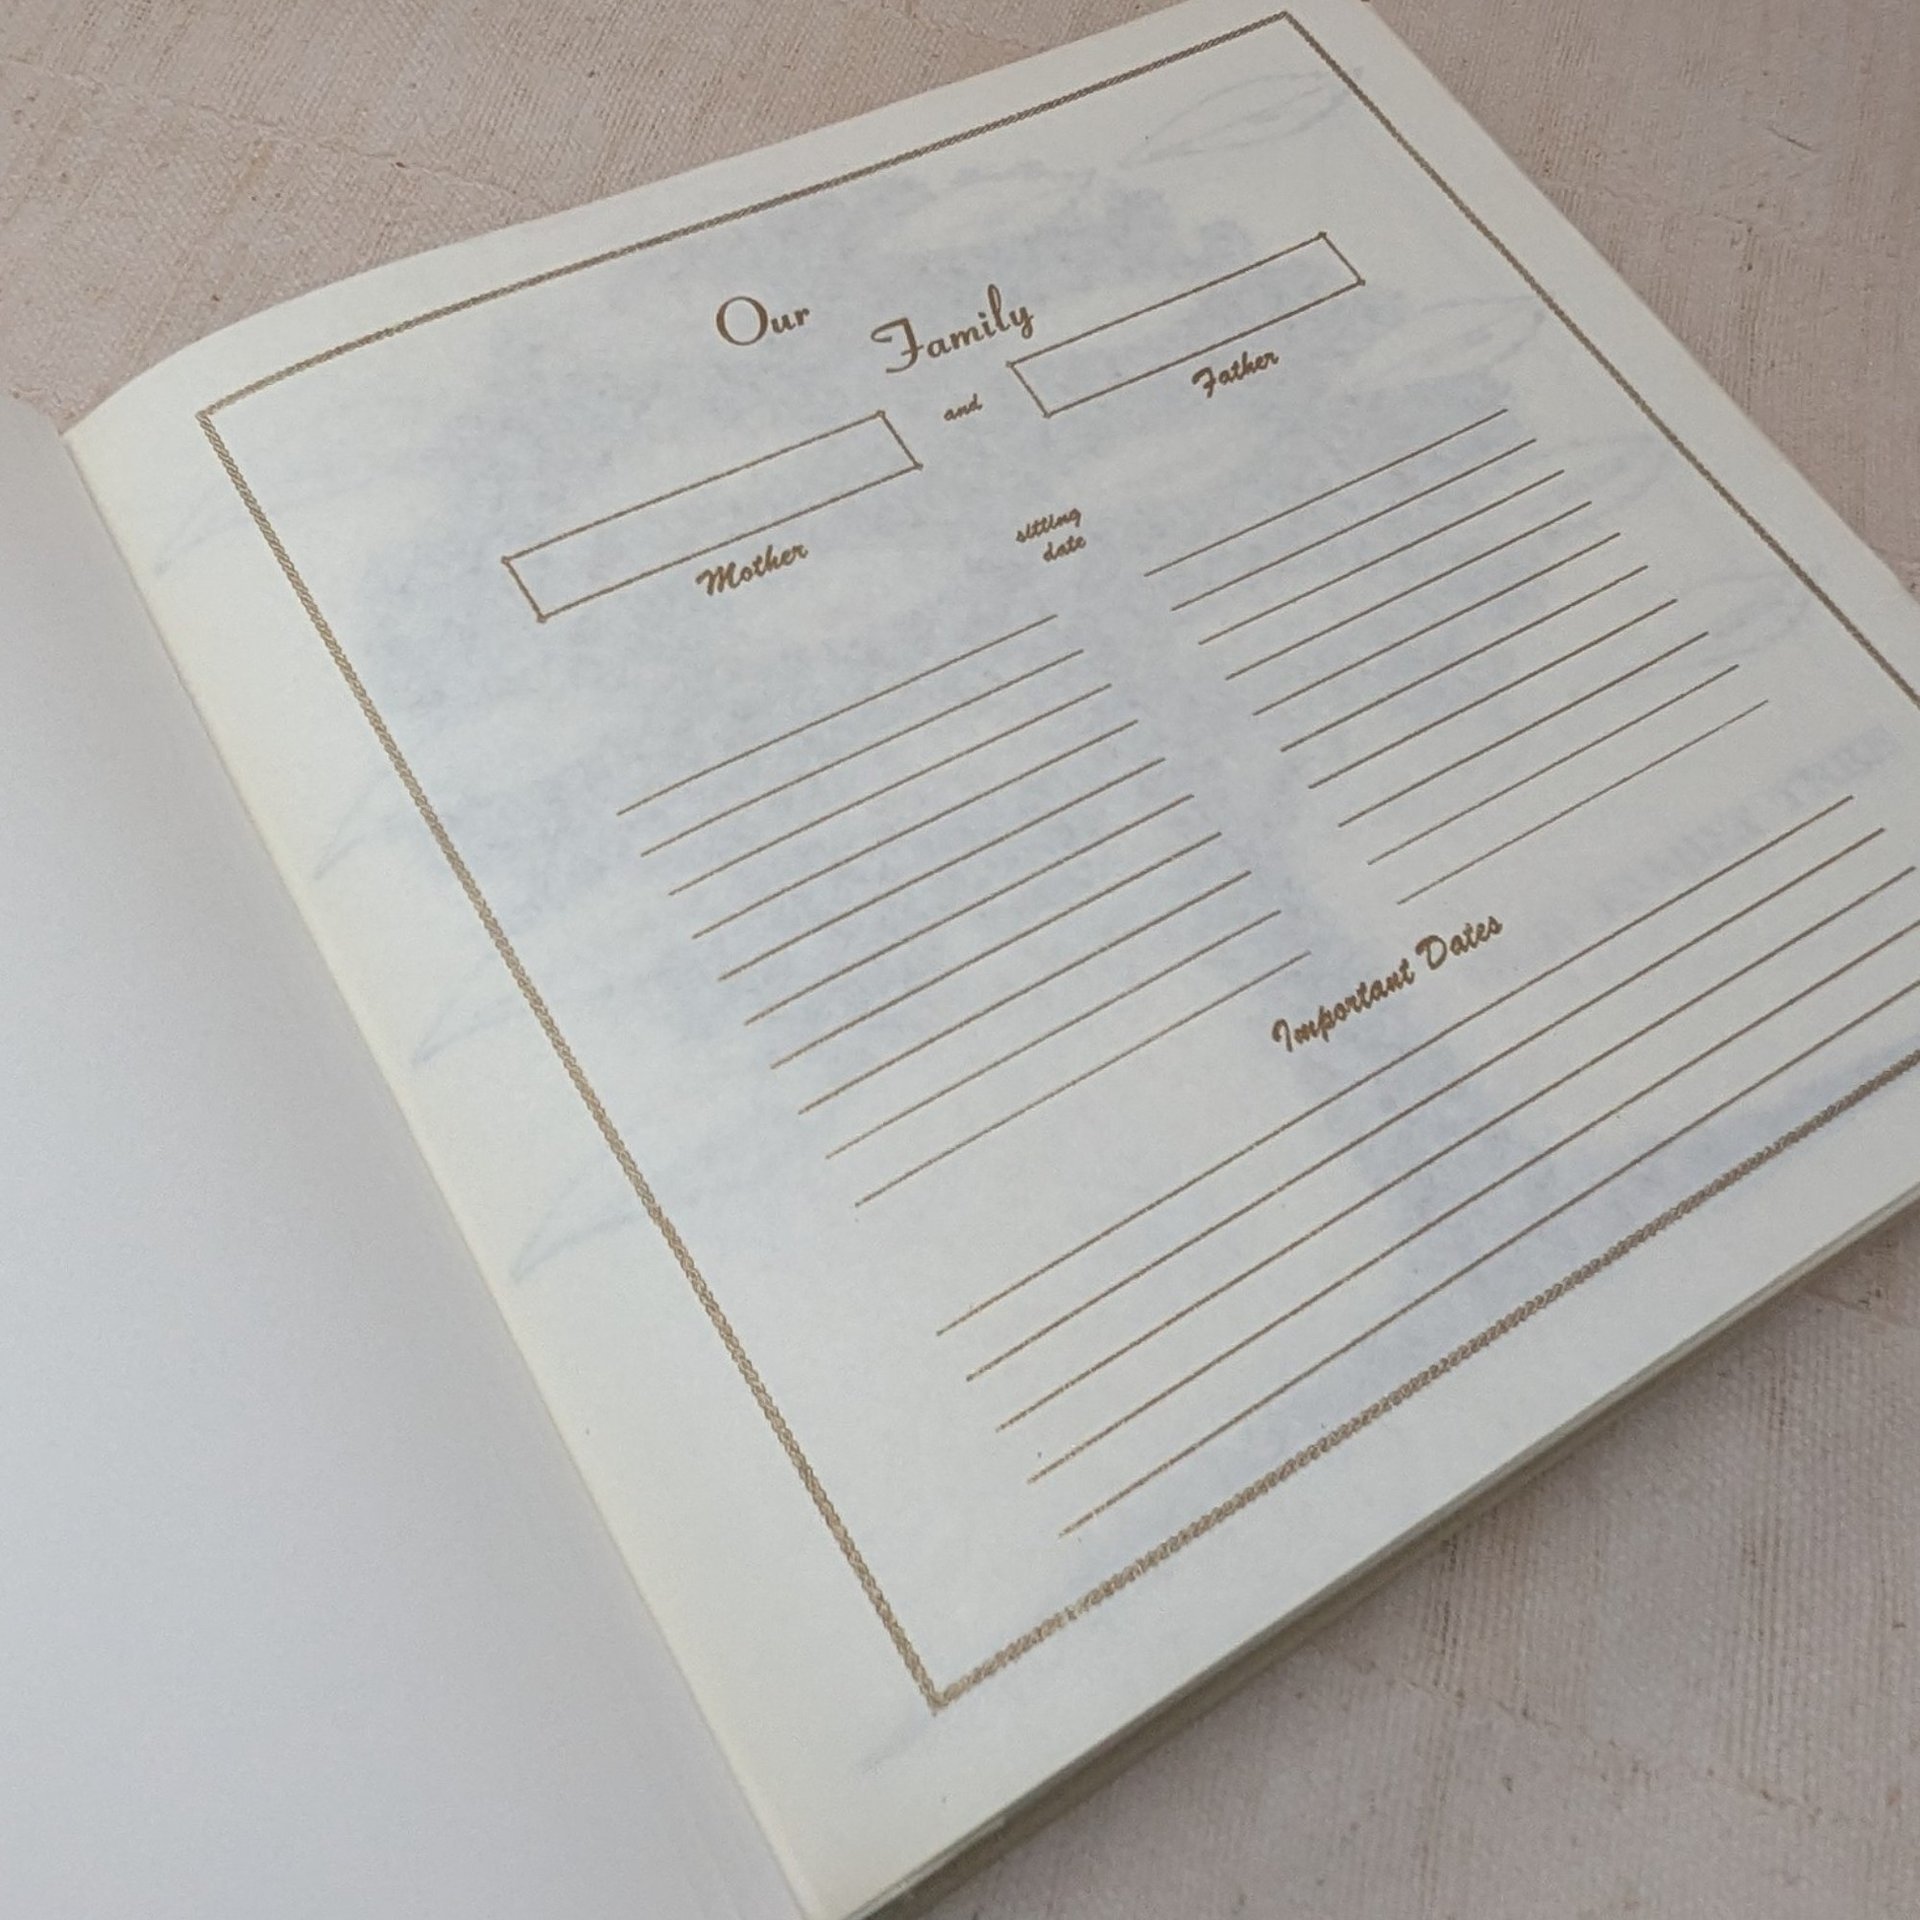 Our Family
and
Mother
Father
sitting
date
Important Dates